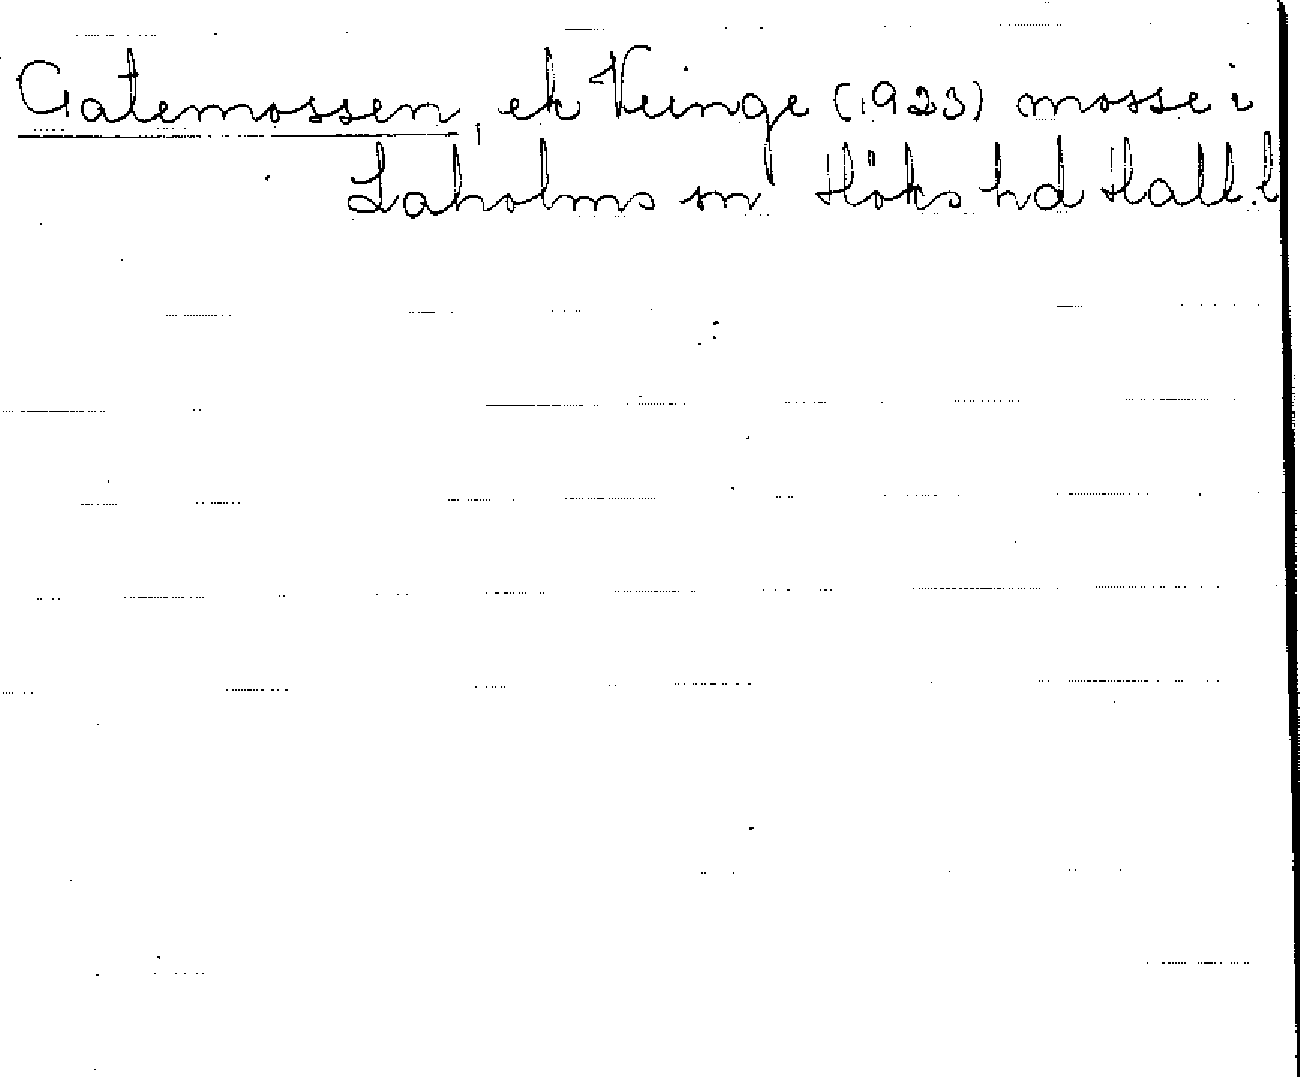 Gatemossen, ek Veinge (1923) mosse i
Laholms sn Höks hd Hall. l